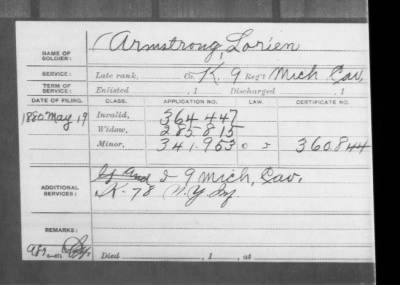 NAME OF SOLDIER: Armstrong, Lorien
SERVICE: Late rank, Co. K, 9 Reg't Mich Cav,
TERM OF SERVICE: Enlisted , 1 Discharged , 1
DATE OF FILING. CLASS. APPLICATION NO. LAW. CERTIFICATE NO.
1880 May 19 Invalid, 364.447
Widow, 285.815
Minor, 341.953 360.844
ADDITIONAL SERVICES: & 9 Mich, Cav.
K-78 N.Y. Inf.
REMARKS:
Died , 1 , at